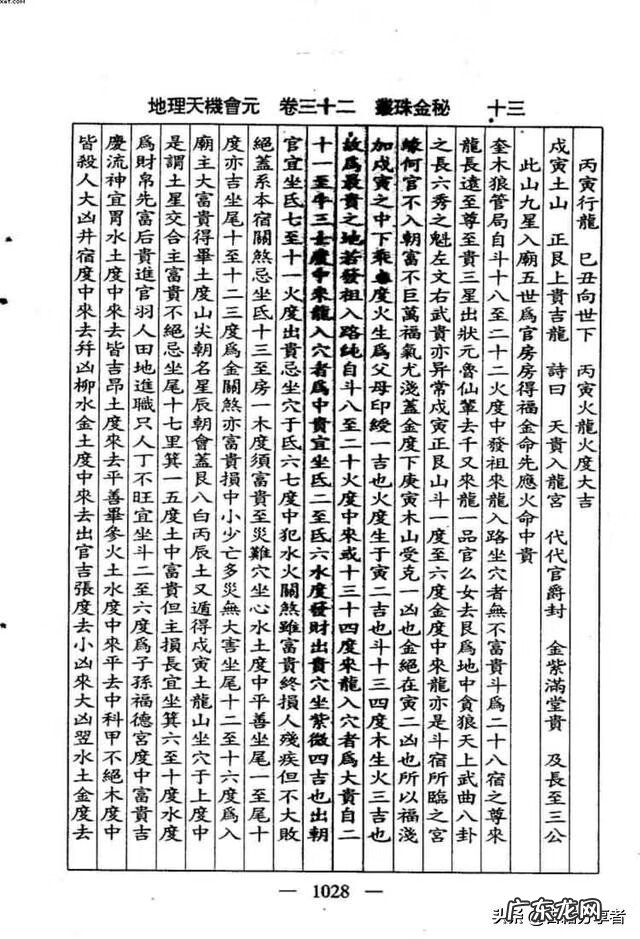 地理天機會元　卷三十二　叢珠金秘　十三
丙寅行龍　巳丑向世下　丙寅火龍火度大吉
戌寅土山　正艮上貴吉龍　詩曰　天貴入龍宮　代代官爵封　金紫滿堂貴　及長至三公
此山九星入廟五世爲官房房得福金命先應火命中貴
奎木狼管局自斗十八至二十二火度中發祖來龍入路坐穴者無不富貴斗爲二十八宿之尊來
龍長遠至尊至貴三星出狀元魯仙輩去千又來龍一品官么女去艮爲地中貪狼天上武曲八卦
之長六秀之魁左文右武貴亦异常戌寅正艮山斗一度至六度金度中來龍亦是斗宿所臨之宮
緣何官不入朝富不巨萬福氣尤淺蓋金度下庚寅木山受克一凶也金絕在寅二凶也所以福淺
加戌寅之中下乘 度火生爲父母印綬一吉也火度生于寅二吉也斗十三四度木生火三吉也
故爲最貴之地若發祖入路純自斗八至二十火度中來或十三十四度來龍入穴者爲大貴自二
十一至牛三 度中來龍入穴者爲中貴宜坐氏二至氏六水度發財出貴穴坐紫微四吉也出朝
官宜坐氏七至十一火度出貴忌坐穴于氏六七度中犯水火關煞雖富貴終損人殘疾但不大敗
絕蓋系本宿關煞忌坐氏十三至房一木度須富貴至災難穴坐心水土度中平善坐尾一至尾十
度亦吉坐尾十至十二三度爲金關煞亦富貴損中小少亡多災無大害坐尾十二至十六度爲入
廟主大富貴得畢土度山尖朝名星辰朝會蓋艮八白丙辰土又遁得戌寅土龍山坐穴于上度中
是謂土星交合主富貴不絕忌坐尾十七里箕一五度土中富貴但主損長宜坐箕六至十度水度
爲財帛先富后貴進官羽人田地進職只人丁不旺宜坐斗二至六度爲子孫福德宮度中富貴吉
慶流神宜胃水土度中來去皆吉昂土度來去平善畢參火土水度中來平去中科甲不絕木度中
皆殺人大凶井宿度中來去幷凶柳水金土度中來去出官吉張度去小凶來大凶翌水土金度去
— 1028 —
头条
享者
广东龙网